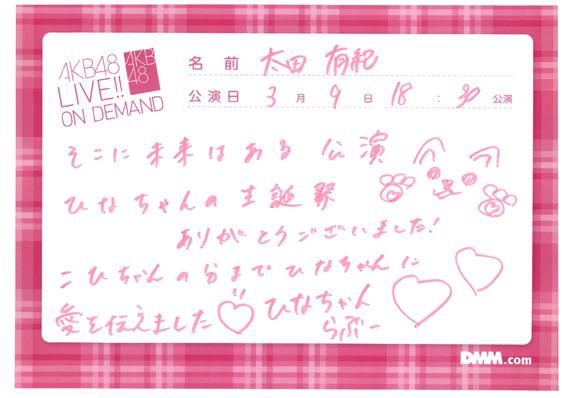 AKB48
LIVE!!
ON DEMAND
AKB
48
名前 太田 有紀
公演日 3月9日 18:30公演
そこに未来はある 公演
ひなちゃんの生誕祭
ありがとうございました!
こひちゃんの分までひなちゃんに
愛を伝えました
ひなちゃん
らぶー
DMM.com